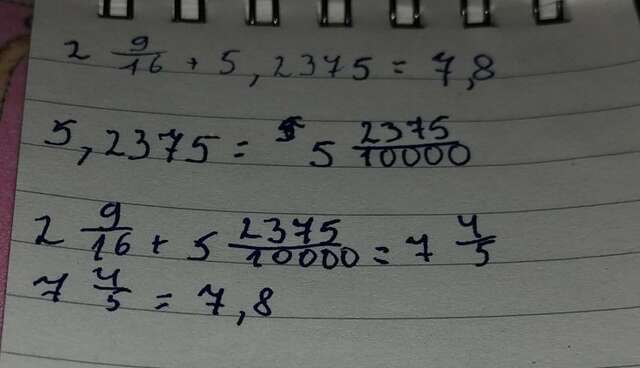 2 9/16 + 5,2375 = 7,8
5,2375 = 5 2375/10000
2 9/16 + 5 2375/10000 = 7 4/5
7 4/5 = 7,8